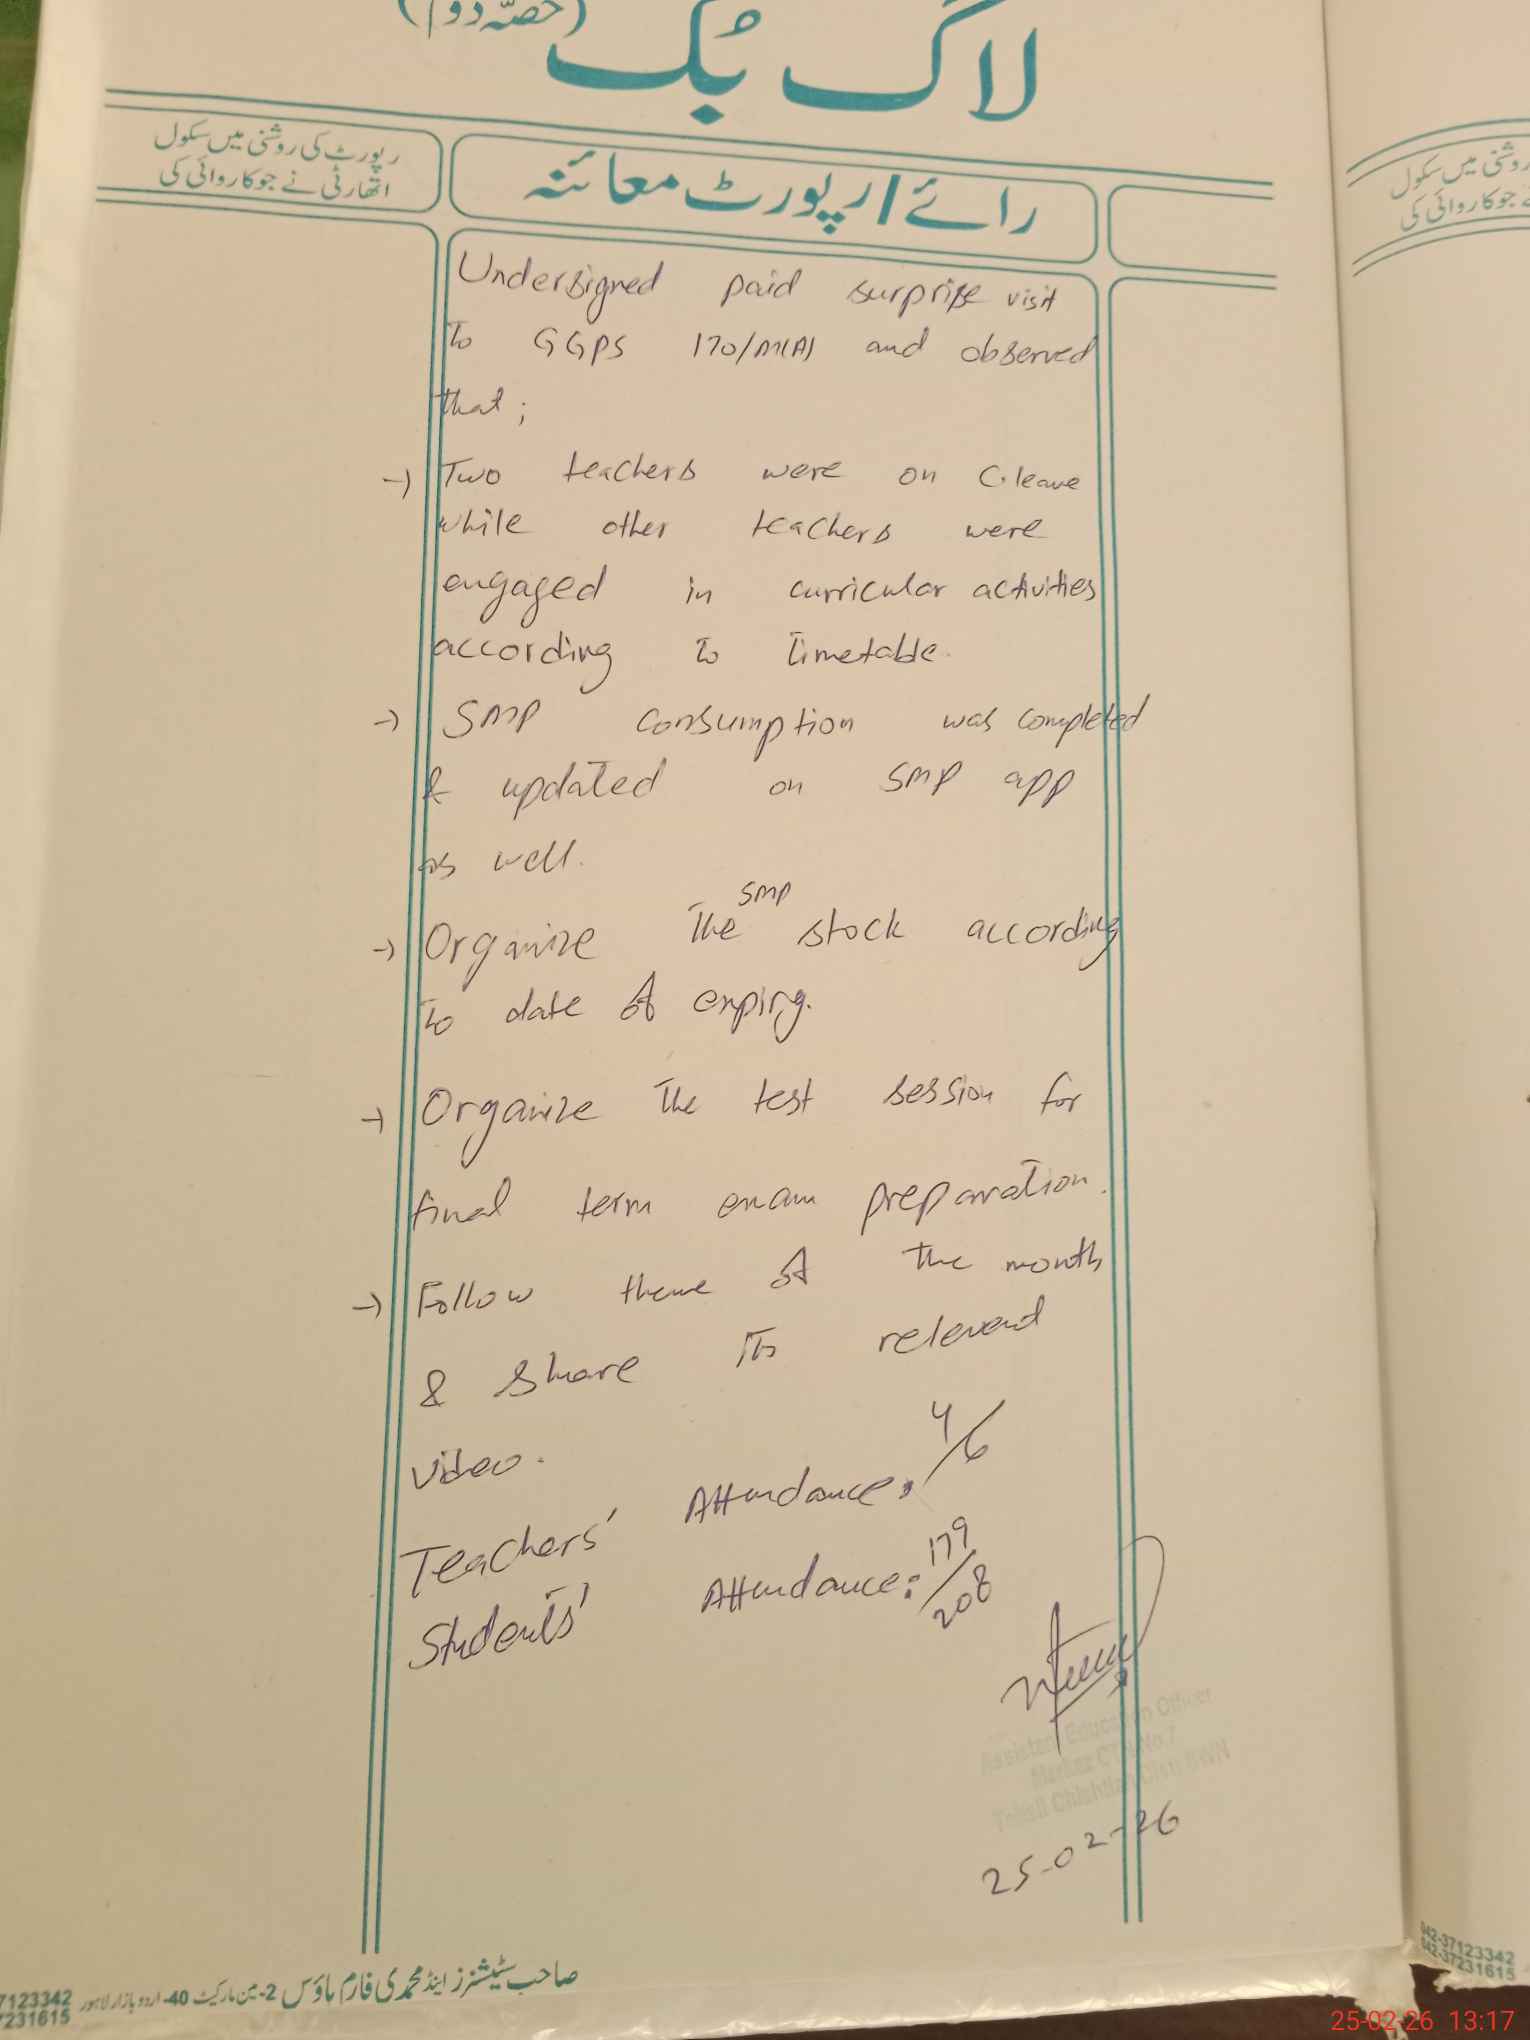 (حصّہ دوم)
لاگ بُک
رپورٹ کی روشنی میں سکول
اتھارٹی نے جو کاروائی کی
رائے/رپورٹ معائنہ
روشنی میں سکول
جو کاروائی کی
Undersigned paid surprise visit
to GGPS 170/M(A) and observed
that;
→ Two teachers were on C.leave
while other teachers were
engaged in curricular activities
according to timetable.
→ SMP consumption was completed
& updated on SMP app
as well.
→ Organize the SMP stock according
to date of expiry.
→ Organize the test session for
final term exam preparation.
→ Follow theme of the month
& share its relevant
video.
Teachers' Attendance: 4/6
Students' Attendance: 179/208
Assistant Education Officer
Markaz CTN No.7
Tehsil Chishtian Distt BWN
25-02-26
صاحب سٹیشنرز اینڈ محمدی فارم ہاؤس 2-مین مارکیٹ 40-اردو بازار لاہور
7123342
7231615
042-37123342
042-37231615
25-02-26 13:17